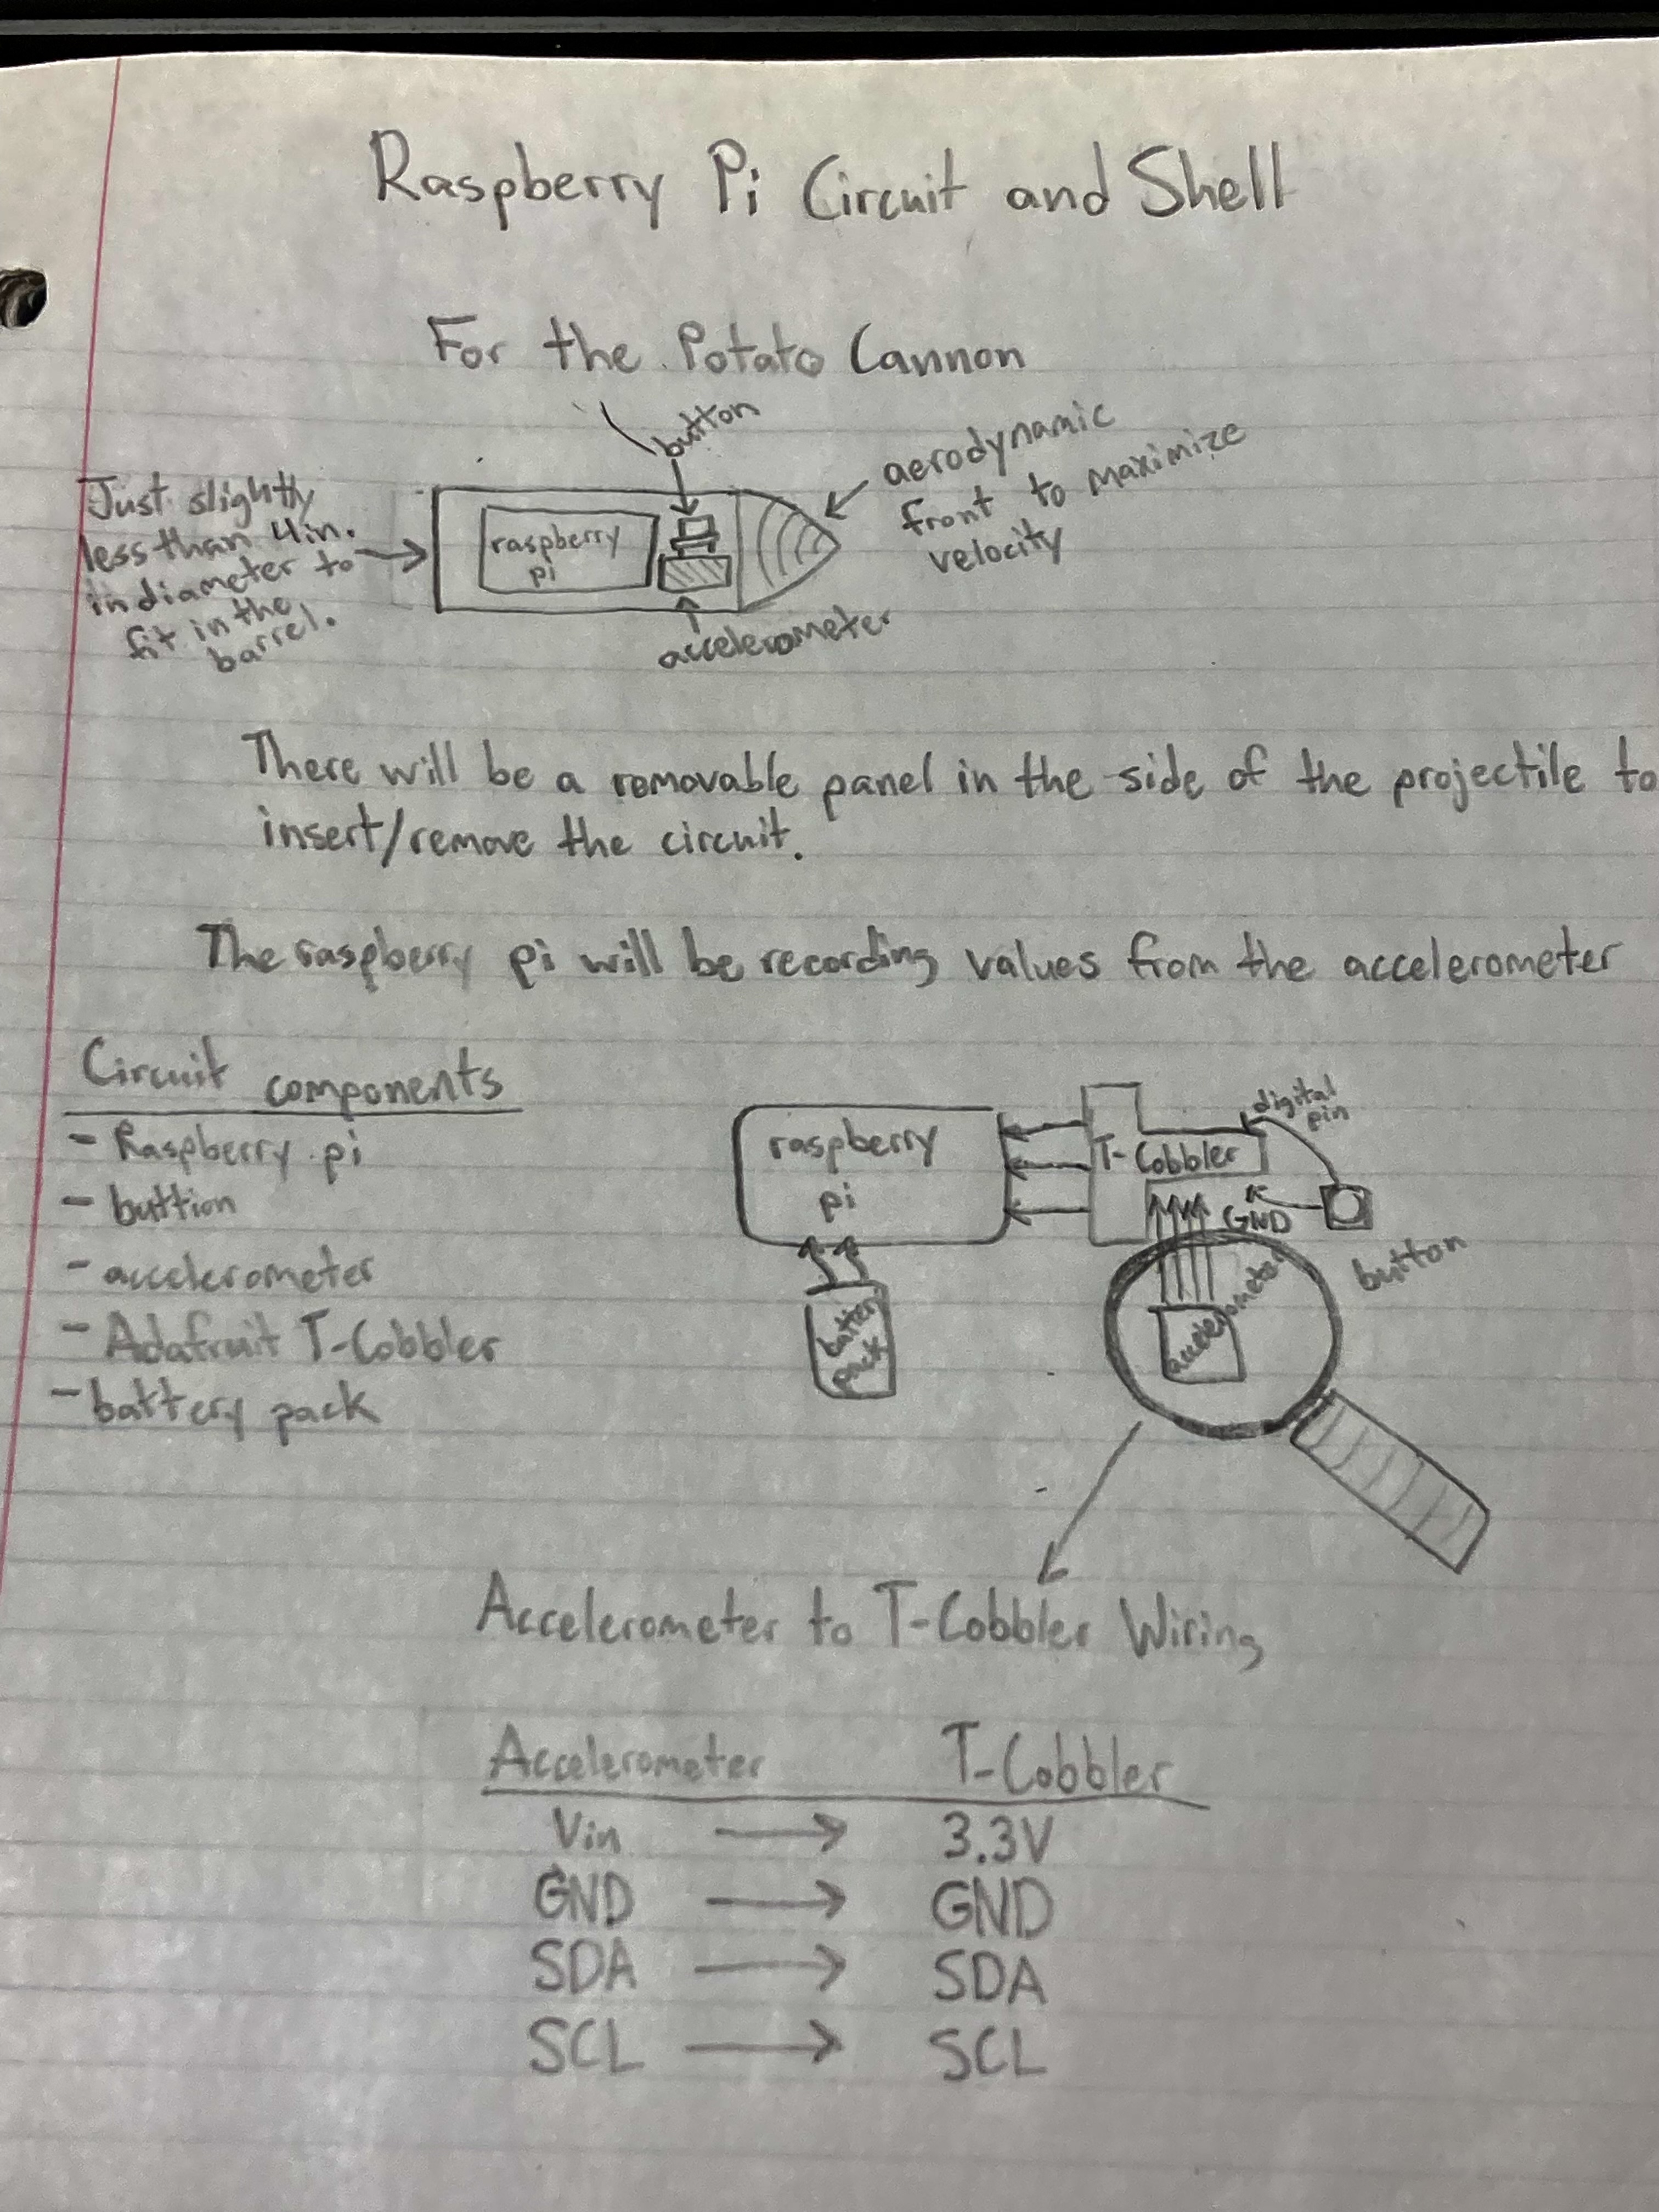 Raspberry Pi Circuit and Shell
For the Potato Cannon
button
aerodynamic
front to maximize
velocity
Just slightly
less than 4in.
in diameter to
fit in the
barrel.
raspberry
pi
accelerometer
There will be a removable panel in the side of the projectile to
insert/remove the circuit.
The raspberry pi will be recording values from the accelerometer
Circuit components
- Raspberry pi
- buttion
- accelerometer
- Adafruit T-Cobbler
- battery pack
raspberry
pi
T-Cobbler
digital
pin
GND
button
battery
pack
accelerometer
Accelerometer to T-Cobbler Wiring
Accelerometer T-Cobbler
Vin → 3.3V
GND → GND
SDA → SDA
SCL → SCL